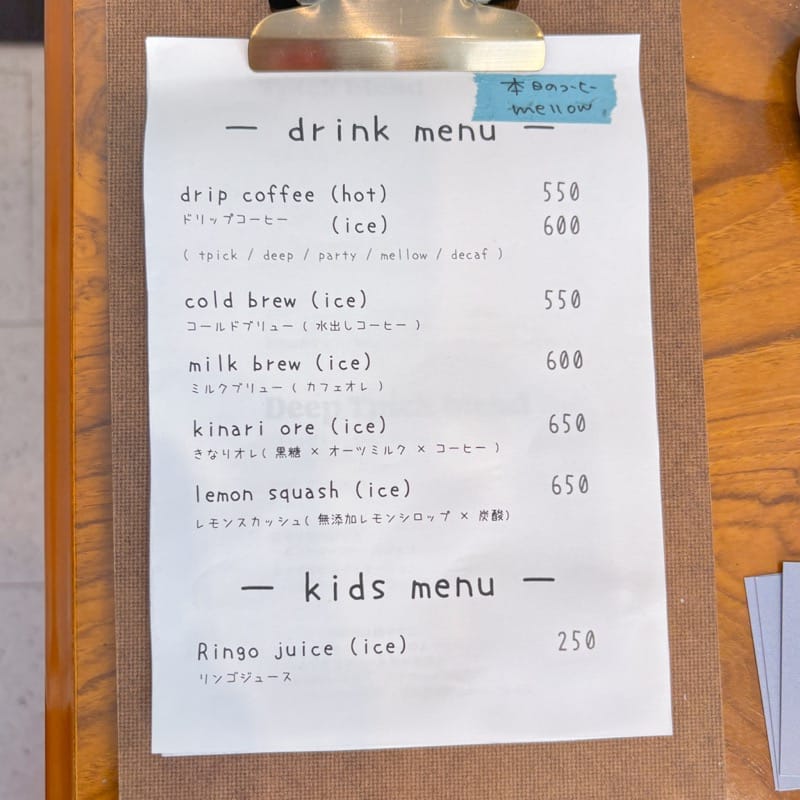 本日のコーヒー
mellow
— drink menu —
drip coffee (hot) 550
ドリップコーヒー (ice) 600
( tpick / deep / party / mellow / decaf )
cold brew (ice) 550
コールドブリュー ( 水出しコーヒー )
milk brew (ice) 600
ミルクブリュー ( カフェオレ )
kinari ore (ice) 650
きなりオレ( 黒糖 × オーツミルク × コーヒー )
lemon squash (ice) 650
レモンスカッシュ( 無添加レモンシロップ × 炭酸)
— kids menu —
Ringo juice (ice) 250
リンゴジュース